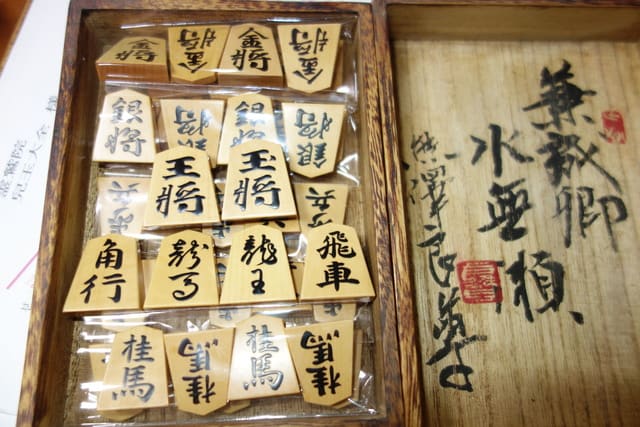 金将 金将 金将 金将
銀将 銀将 銀将 銀将
王将 玉将
歩兵 歩兵
角行 龍馬 龍王 飛車
桂馬 桂馬 桂馬 桂馬
兼成卿
水無瀬
熊澤良尊